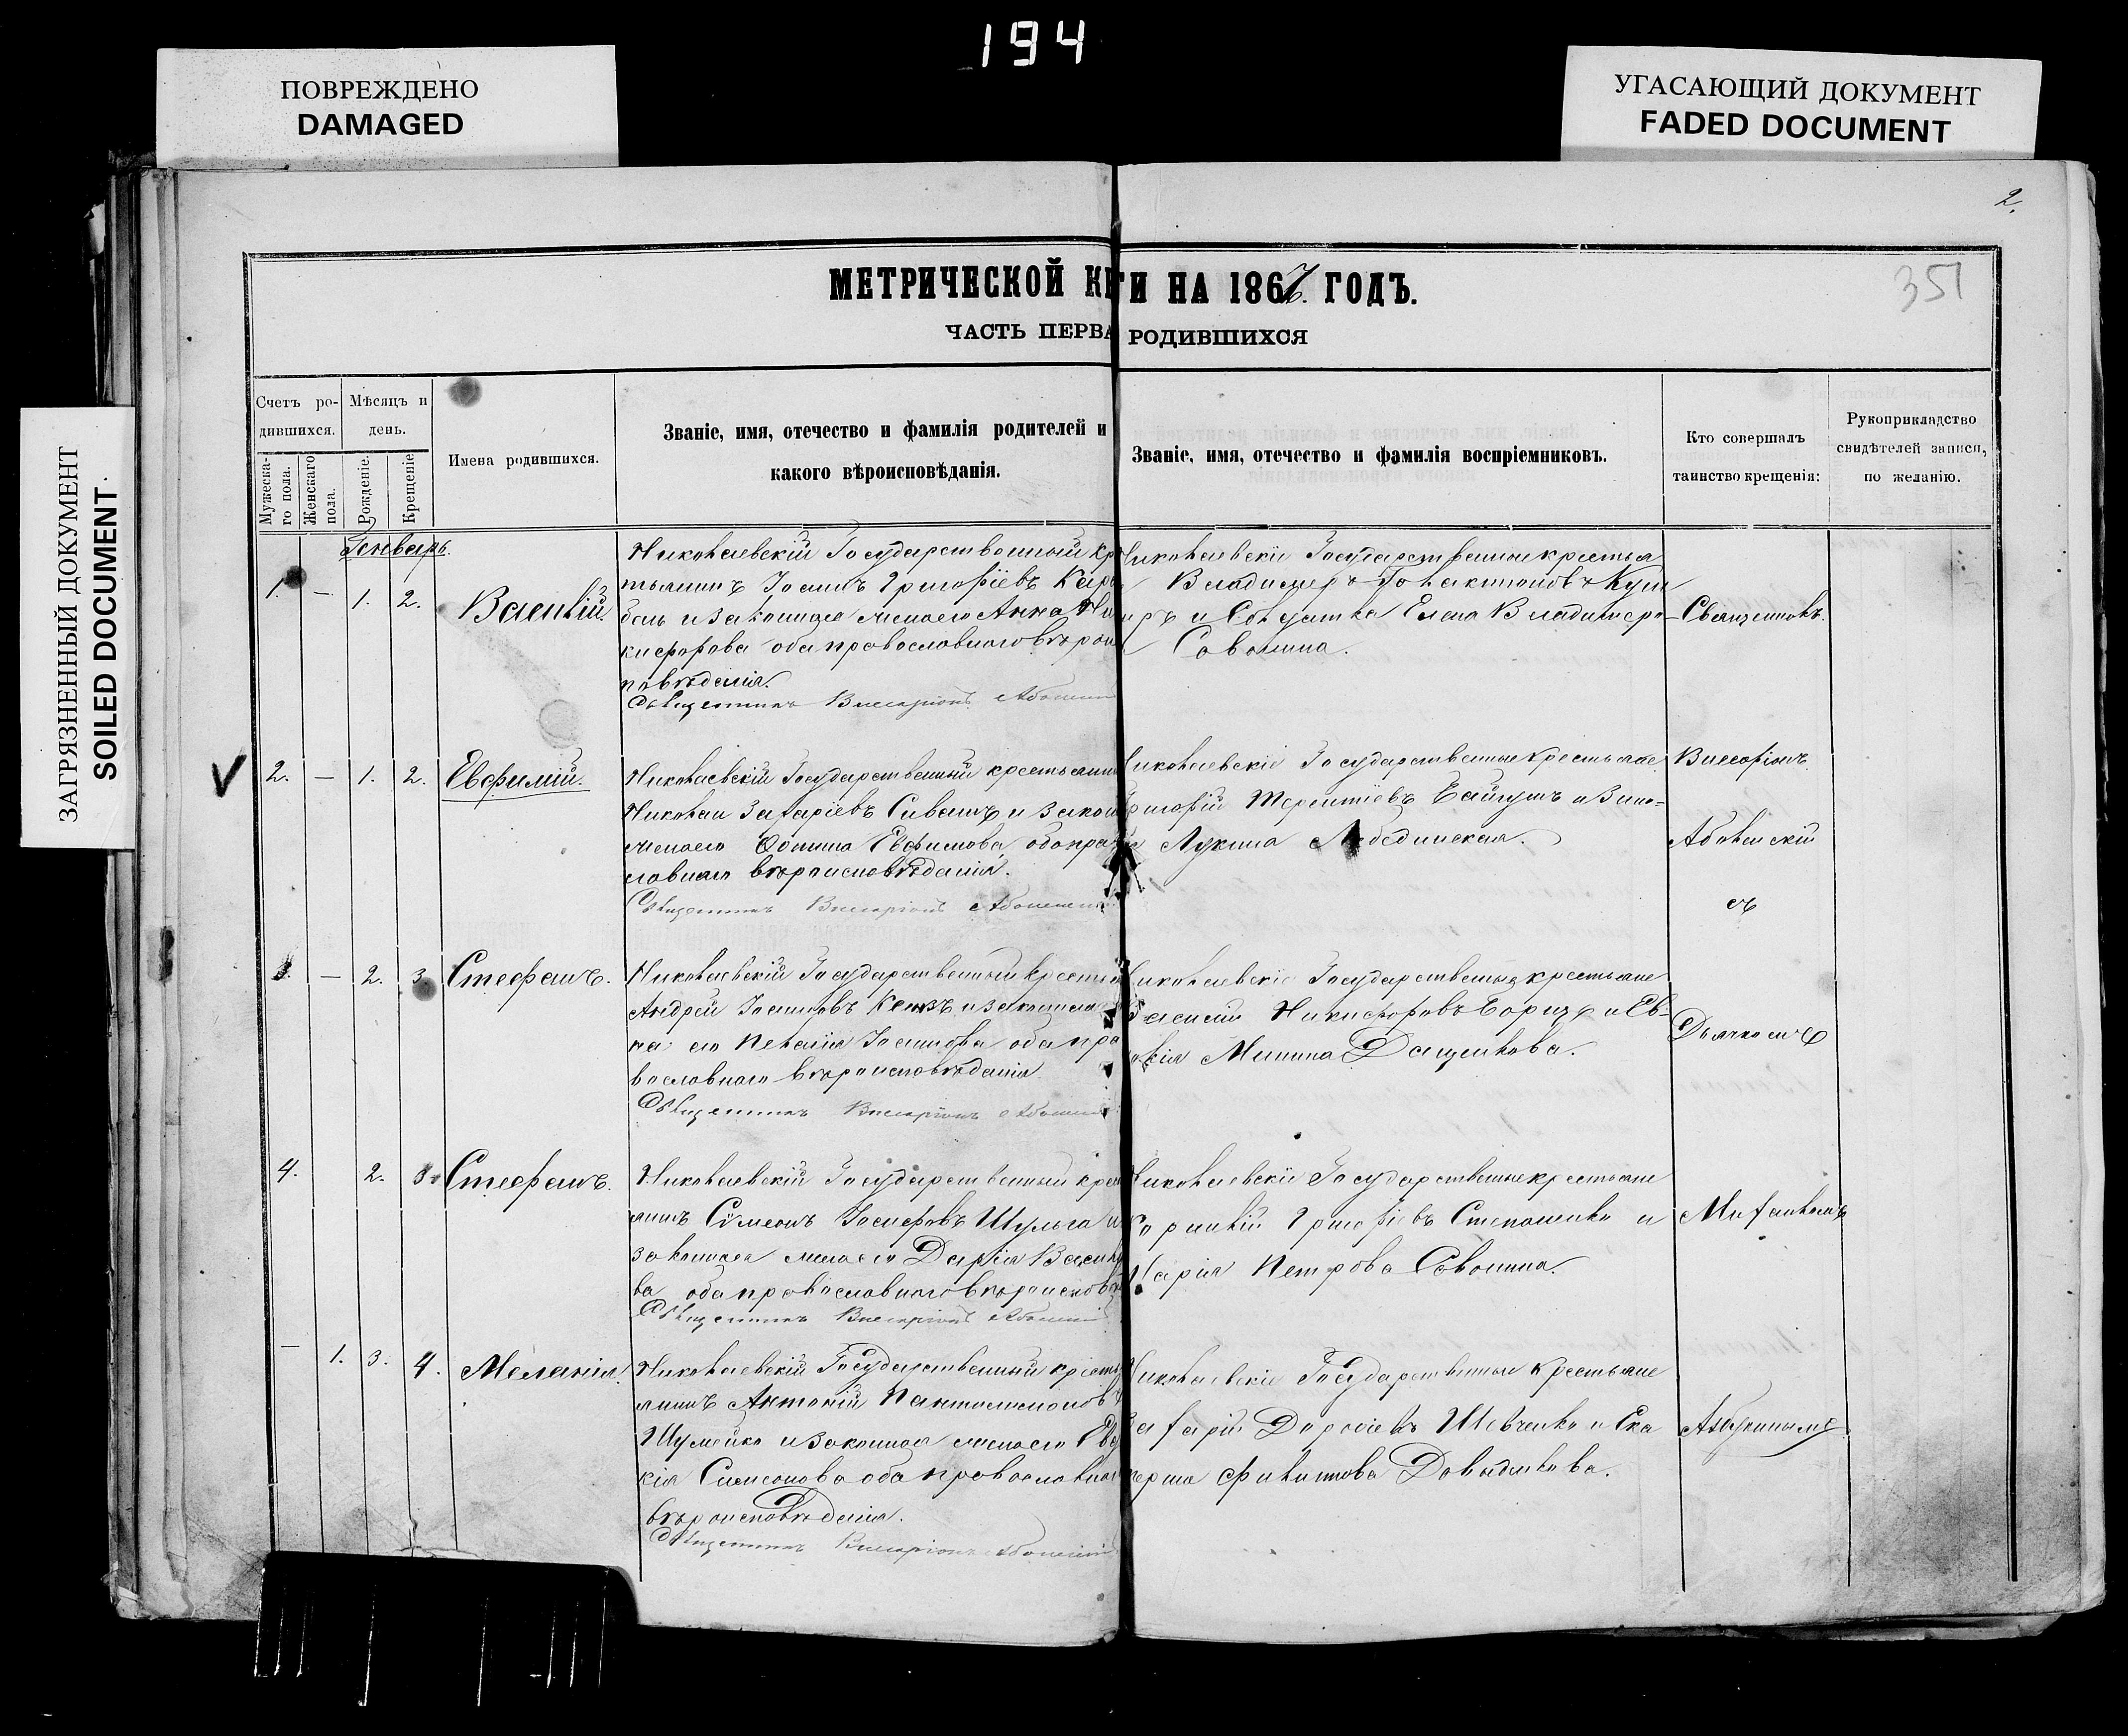 194
ПОВРЕЖДЕНО
DAMAGED
УГАСАЮЩИЙ ДОКУМЕНТ
FADED DOCUMENT
ЗАГРЯЗНЕННЫЙ ДОКУМЕНТ
SOILED DOCUMENT
2.
351
МЕТРИЧЕСКОЙ КН
ГИ НА 1867. ГОДЪ.
ЧАСТЬ ПЕРВА
РОДИВШИХСЯ
Счетъ ро-
дившихся.
Мужеска-
го пола.
Женскаго
пола.
Мѣсяцъ и
день.
Рожденіе.
Крещеніе
Имена родившихся.
Званіе, имя, отечество и фамилія родителей и
какого вѣроисповѣданія.
Званіе, имя, отечество и фамилія воспріемниковъ.
Кто совершалъ
таинство крещенія:
Рукоприкладство
свидѣтелей записи,
по желанію.
Генварь.
1. — 1. 2. Василій.
Николаевскій Государственный кре
тьянинъ Іоаннъ Григоріевъ
и законная жена его Анна Ни
кифорова оба православнаго вѣроис
повѣданія.
Священникъ Виссаріонъ
Николаевскіе Государственные крестья
Владимеръ
и Елена Владимеро
Савонина.
Священникъ
2. — 1. 2. Евфимій.
Николаевскій Государственный крестьянин
Николай Захаріевъ Сивашъ и закон
жена его Ефимова, оба пра
славнаго вѣроисповѣданія.
Священникъ Виссаріонъ
Николаевскіе Государственные крестьяне
Григорій Терентіевъ и Зино-
Лукина Лебединская.
Виссаріонъ
съ
3. — 2. 3. Стефанъ.
Николаевскій Государственный крестьян
Андрей Іоанновъ и законная
на его Пелагія Іоаннова оба пра
вославнаго вѣроисповѣданія
Священникъ Виссаріонъ
Николаевскіе Государственные крестьяне
Василій Никифоровъ и Ев-
Минина Дащенкова.
Дьячкомъ
4. 2. 3. Стефанъ.
Николаевскій Государственный крес
янинъ Сѵмеонъ Іосифовъ Шульга и
законная жена его Дарія Василь
ва оба православнаго вѣроисповѣ
Священникъ Виссаріонъ
Николаевскіе Государственные крестьяне
Корнилій Григоріевъ Степаненко и
Марія Петрова Савонина.
Михаиломъ
— 1. 3. 4. Меланія.
Николаевскій Государственный кресть
янинъ Антоній Пантелемоновъ
Шулейко и законная жена его Евдо
кія Симеонова оба православнаг
вѣроисповѣданія.
Священникъ Виссаріонъ
Николаевскіе Государственные крестьяне
Захарій Дороѳіевъ Шевченко и Ека
терина Филипова Давыденкова.
Азбукинымъ